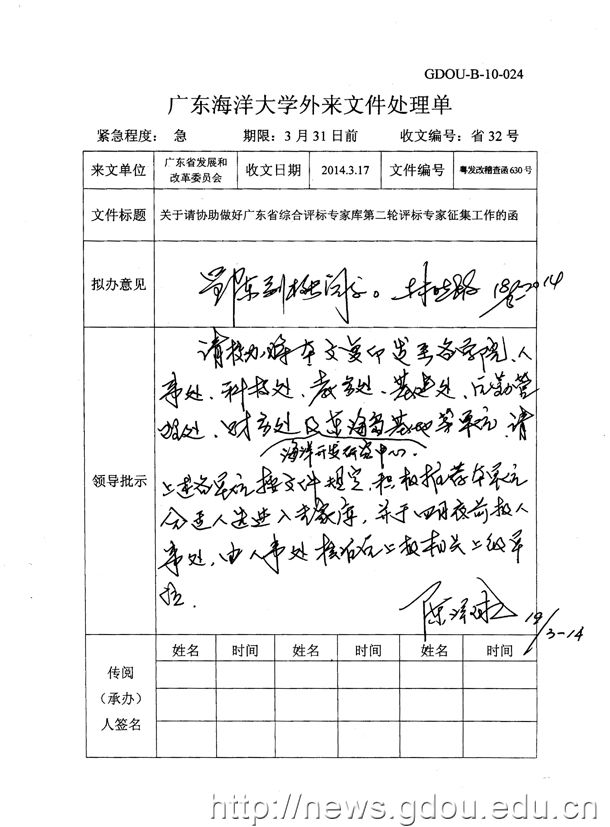 GDOU-B-10-024
广东海洋大学外来文件处理单
紧急程度： 急 期限：3 月 31 日前 收文编号：省 32 号
来文单位 广东省发展和改革委员会 收文日期 2014.3.17 文件编号 粤发改稽查函 630 号
文件标题 关于请协助做好广东省综合评标专家库第二轮评标专家征集工作的函
拟办意见
18/3-2014
领导批示
请校办将本文复印送至各学院、人
事处、科技处、教务处、基建处、后勤管
理处、财务处及东海岛基地等单元，请
海洋开发研究中心
上述各单元按文件规定，积极推荐本单元
合适人选进入专家库，并于四月底前报人
事处，由人事处 上报相关上级单
位.
19/3-14
姓名 时间 姓名 时间 姓名 时间
传阅
（承办）
人签名
http://news.gdou.edu.cn